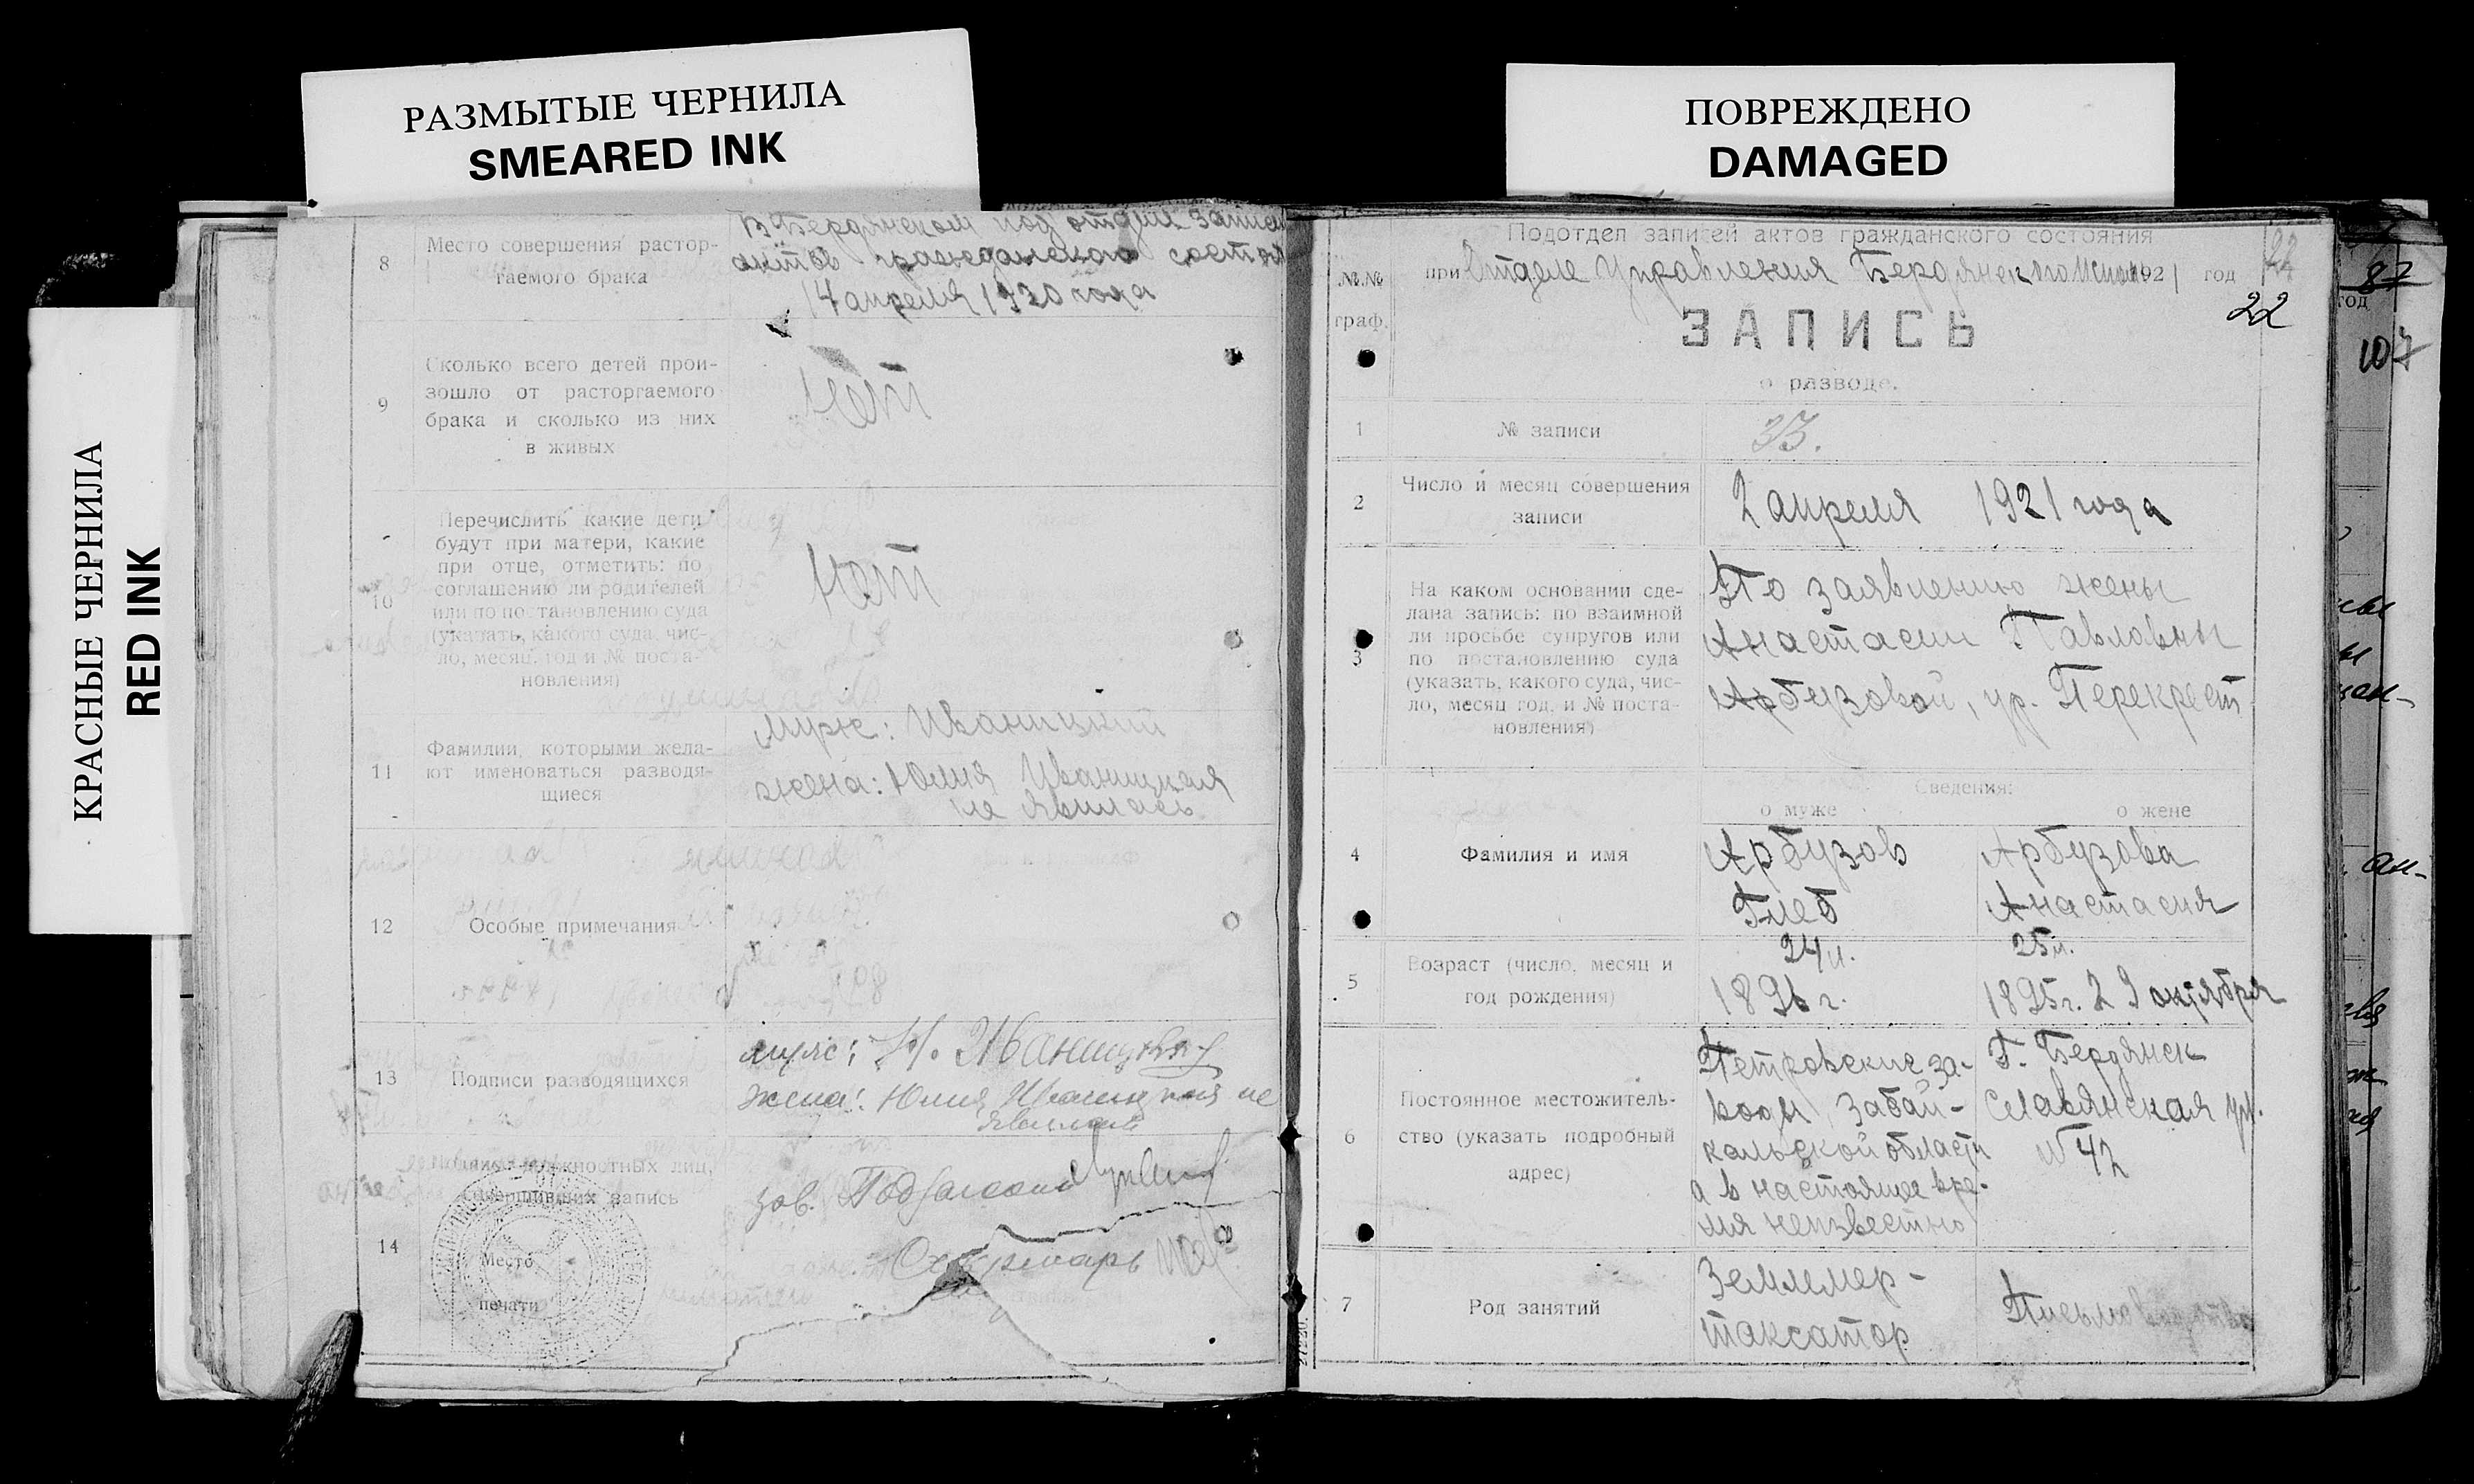 РАЗМЫТЫЕ ЧЕРНИЛА
SMEARED INK
ПОВРЕЖДЕНО
DAMAGED
КРАСНЫЕ ЧЕРНИЛА
RED INK
8
Место совершения растор-
гаемого брака
В Бердянском под отделе записи
актов гражданского состоя
14 апреля 1920 года
9
Сколько всего детей прои-
зошло от расторгаемого
брака и сколько из них
в живых
Нет
10
Перечислить какие дети
будут при матери, какие
при отце, отметить: по
соглашению ли родителей
или по постановлению суда
(указать, какого суда, чис-
ло, месяц, год и № поста-
новления)
Нет
11
Фамилии, которыми жела-
ют именоваться разводя-
щиеся
муж: Иваницкий
жена: Юлия Иваницкая
не явилась
12
Особые примечания
13
Подписи разводящихся
муж: Иваницкий
жена: Юлия Иваницкая не
явилась
14
должностных лиц,
совершивших запись
Место
печати
зав. Подотделом
Секретарь
№№
граф.
Подотдел записей актов гражданского состояния
при Отделе Управления Бердянского 1921 год
22
ЗАПИСЬ
о разводе.
1
№ записи
33.
2
Число и месяц совершения
записи
2 апреля 1921 года
3
На каком основании сде-
лана запись: по взаимной
ли просьбе супругов или
по постановлению суда
(указать, какого суда, чис-
ло, месяц год, и № поста-
новления)
По заявлению жены
Анастасии Павловны
Арбузовой, ур. Перекрест
Сведения:
о муже
о жене
4
Фамилия и имя
Арбузов
Глеб
Арбузова
Анастасия
5
Возраст (число, месяц и
год рождения)
24 л.
1896 г.
25 л.
1895 г. 29 октября
6
Постоянное местожитель-
ство (указать подробный
адрес)
Петровские за-
воды, Забай-
кальской области
а в настоящее вре-
мя неизвестно
Г. Бердянск
Славянская ул.
№ 42
7
Род занятий
Землемер-
таксатор
87
год
107